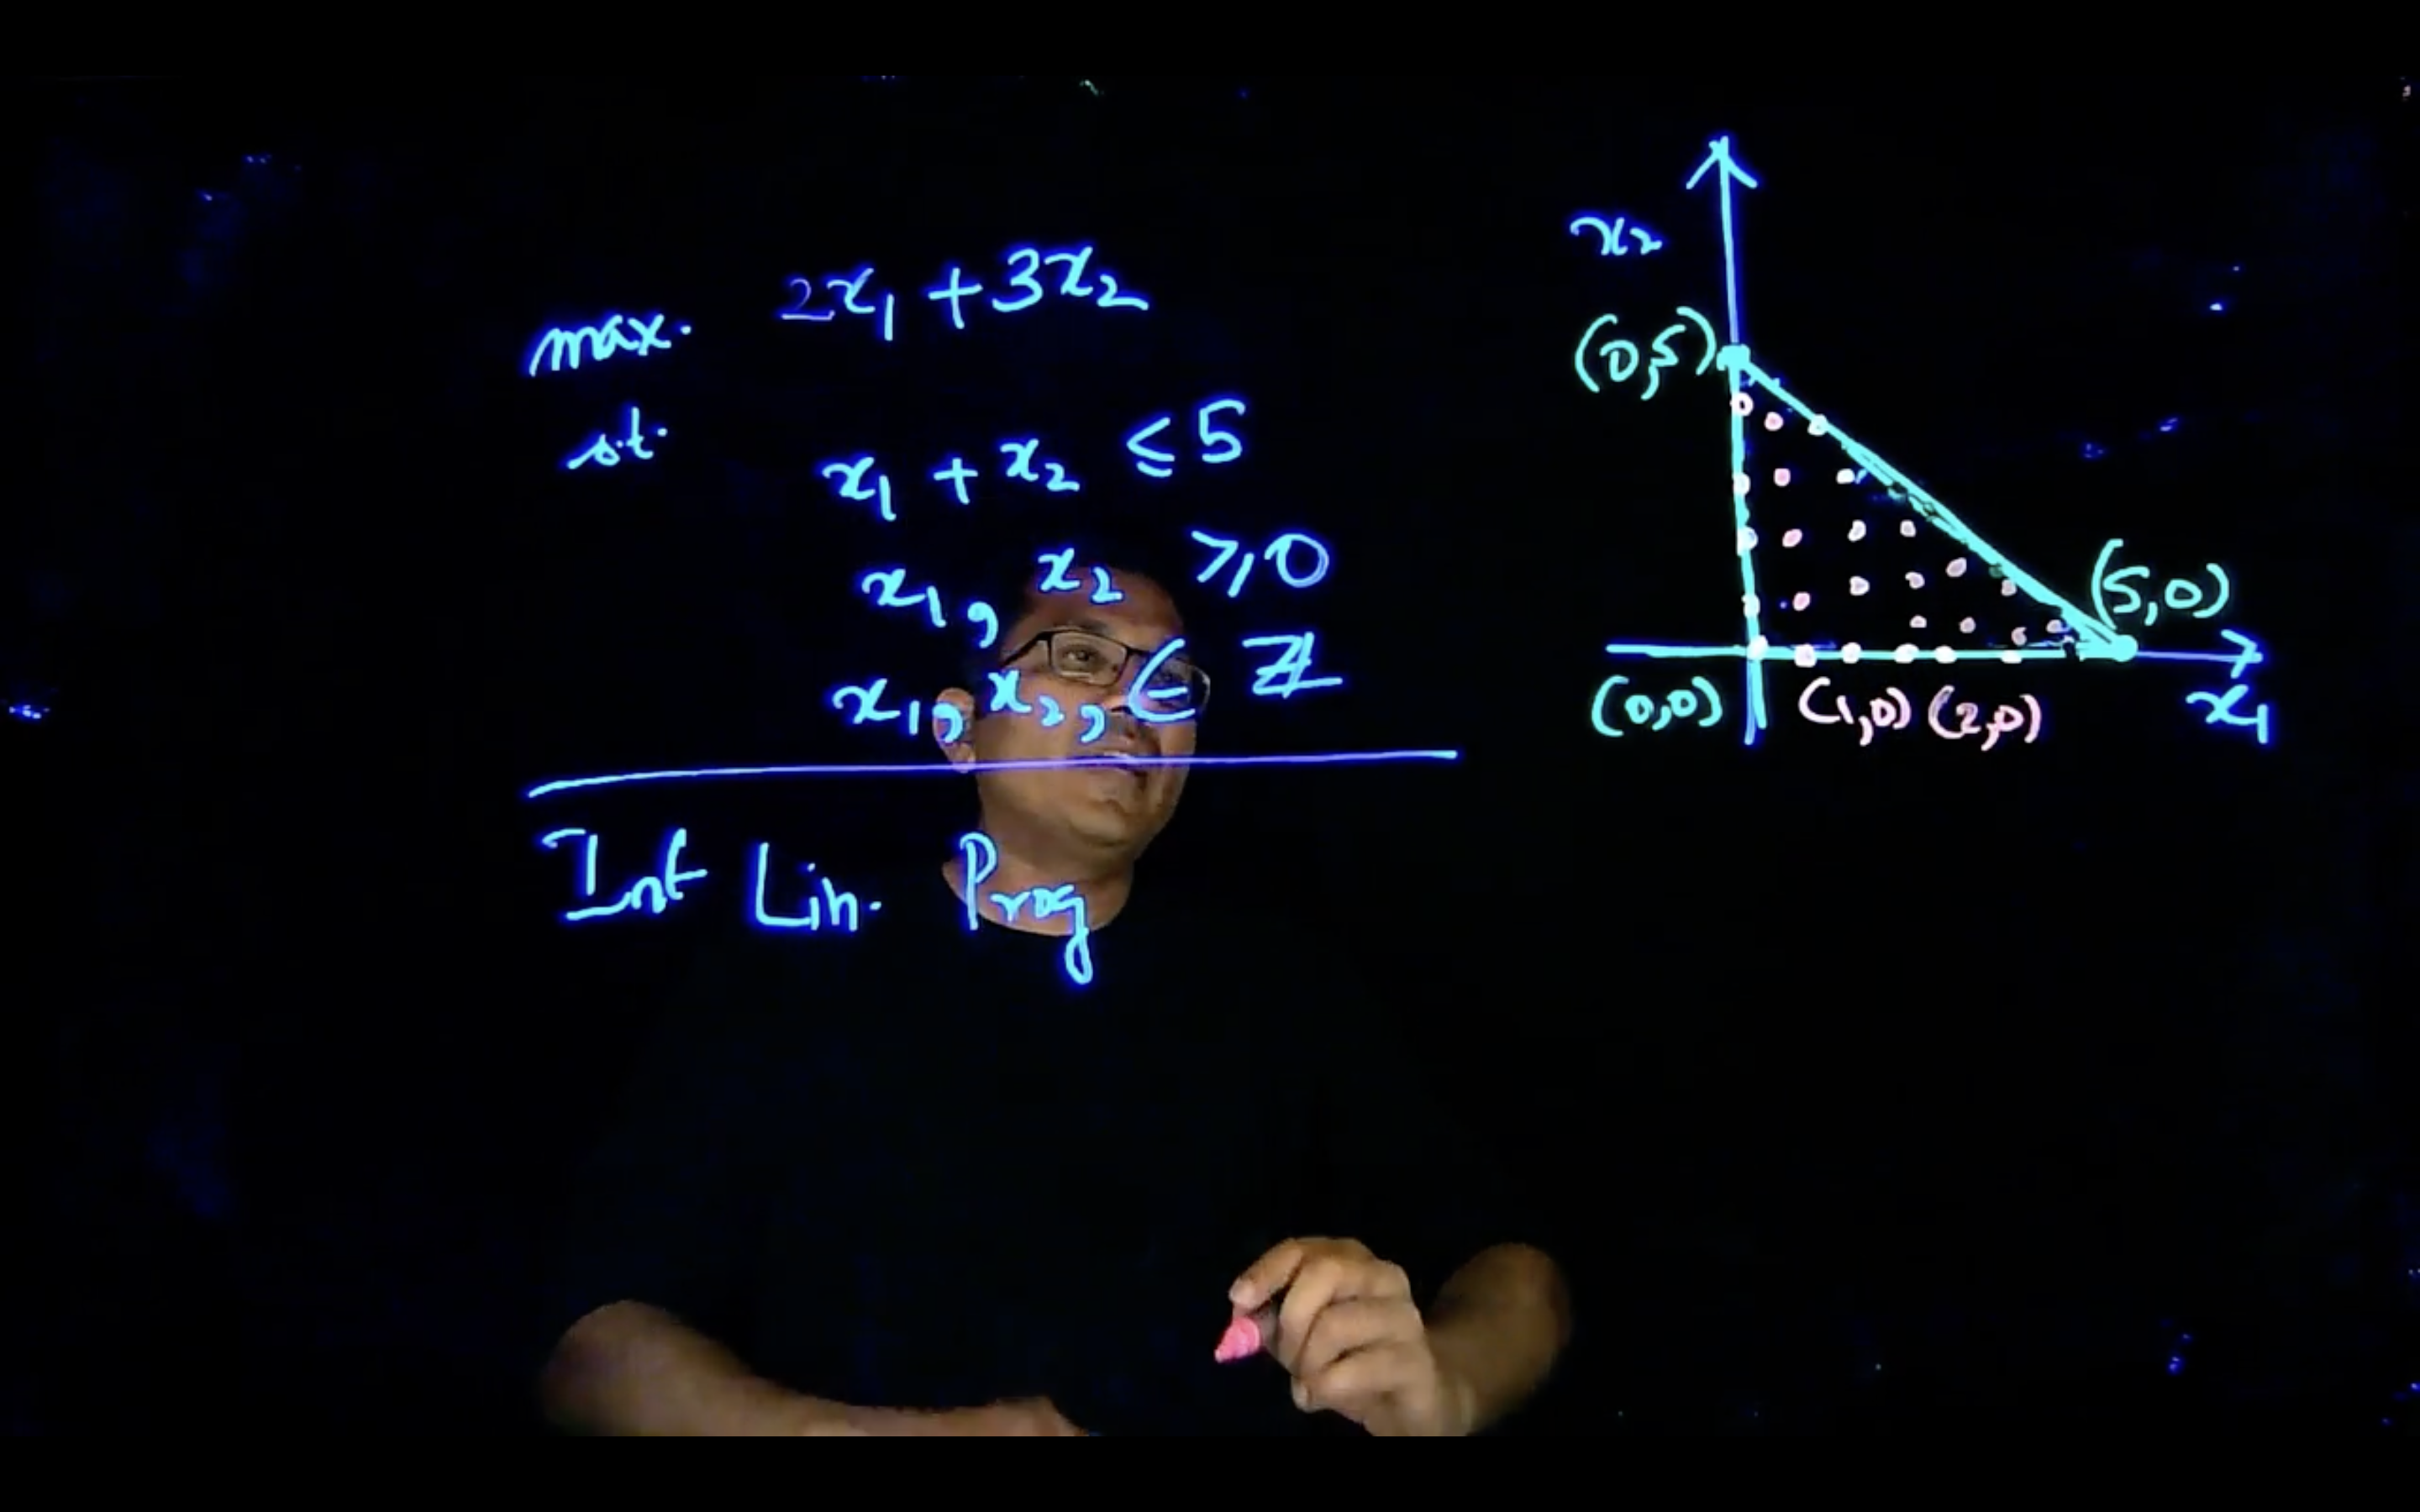 max. 2x₁ + 3x₂
s.t. x₁ + x₂ ≤ 5
x₁, x₂ ≥ 0
x₁, x₂, ∈ ℤ
Int Lin. Prog
x₂
(0,5)
(5,0)
(0,0) (1,0) (2,0) x₁